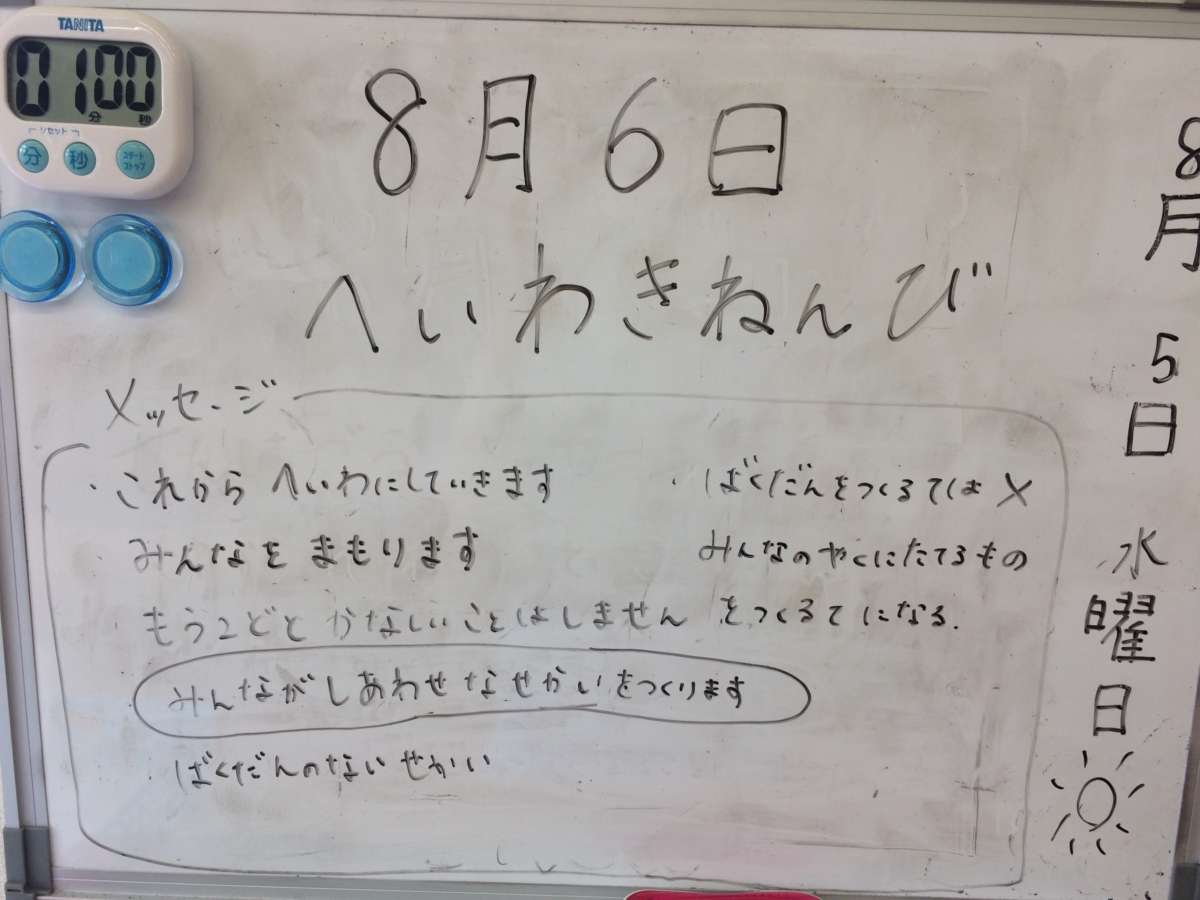 TANITA
01 00
分 秒
リセット
分 秒 スタート ストップ
8月6日
へいわきねんび
メッセージ
・これから へいわにしていきます
みんなを まもります
もう2どと かなしいことはしません
みんながしあわせなせかいをつくります
・ばくだんのないせかい
・ばくだんをつくるては×
みんなのやくにたてるもの
をつくるてになる.
8月 5日 水曜日